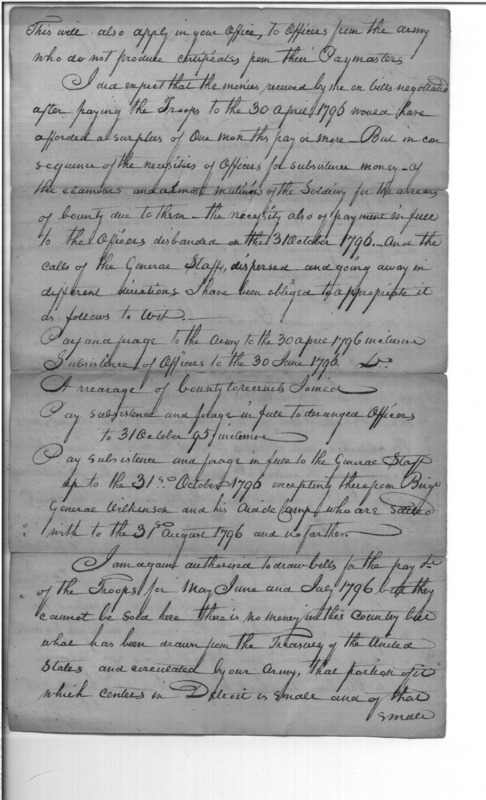 This will also apply in your Office, to Officers from the army
who do not produce certificates from their Paymasters
I did expect that the monies received by me on bills negotiated
after paying the Troops to the 30 April 1796 would have
afforded a surplus of One months pay or more - But in con
sequence of the necessities of Officers for subsistence money - of
the clamours and almost mutinies of the Soldiery for the arrears
of bounty due to them - the necessity also of payment in full
to the Officers disbanded on the 31 October 1796 - And the
calls of the General Staff, dispersed and going away in
different directions I have been obliged to appropriate it
as follows to Wit. -
Pay and forage to the Army to the 30 April 1796 inclusive
Subsistence of Officers to the 30 June 1796 Do.
Arrearage of bounty to recruits Joined
Pay subsistence and forage in full to deranged Officers
to 31 October 95 inclusive
Pay subsistence and forage in full to the General Staff
up to the 31st October 1796 excepting therefrom Brigr
General Wilkinson and his Aid de Camp who are settled
with to the 31st August 1796 and no farther.
I am again authorised to draw bills for the pay &c
of the Troops for May June and July 1796 but they
cannot be sold here there is no money in this Country but
what has been drawn from the Treasury of the United
States and circulated by our Army, that portion of it
which centers in Detroit is small and of that
small